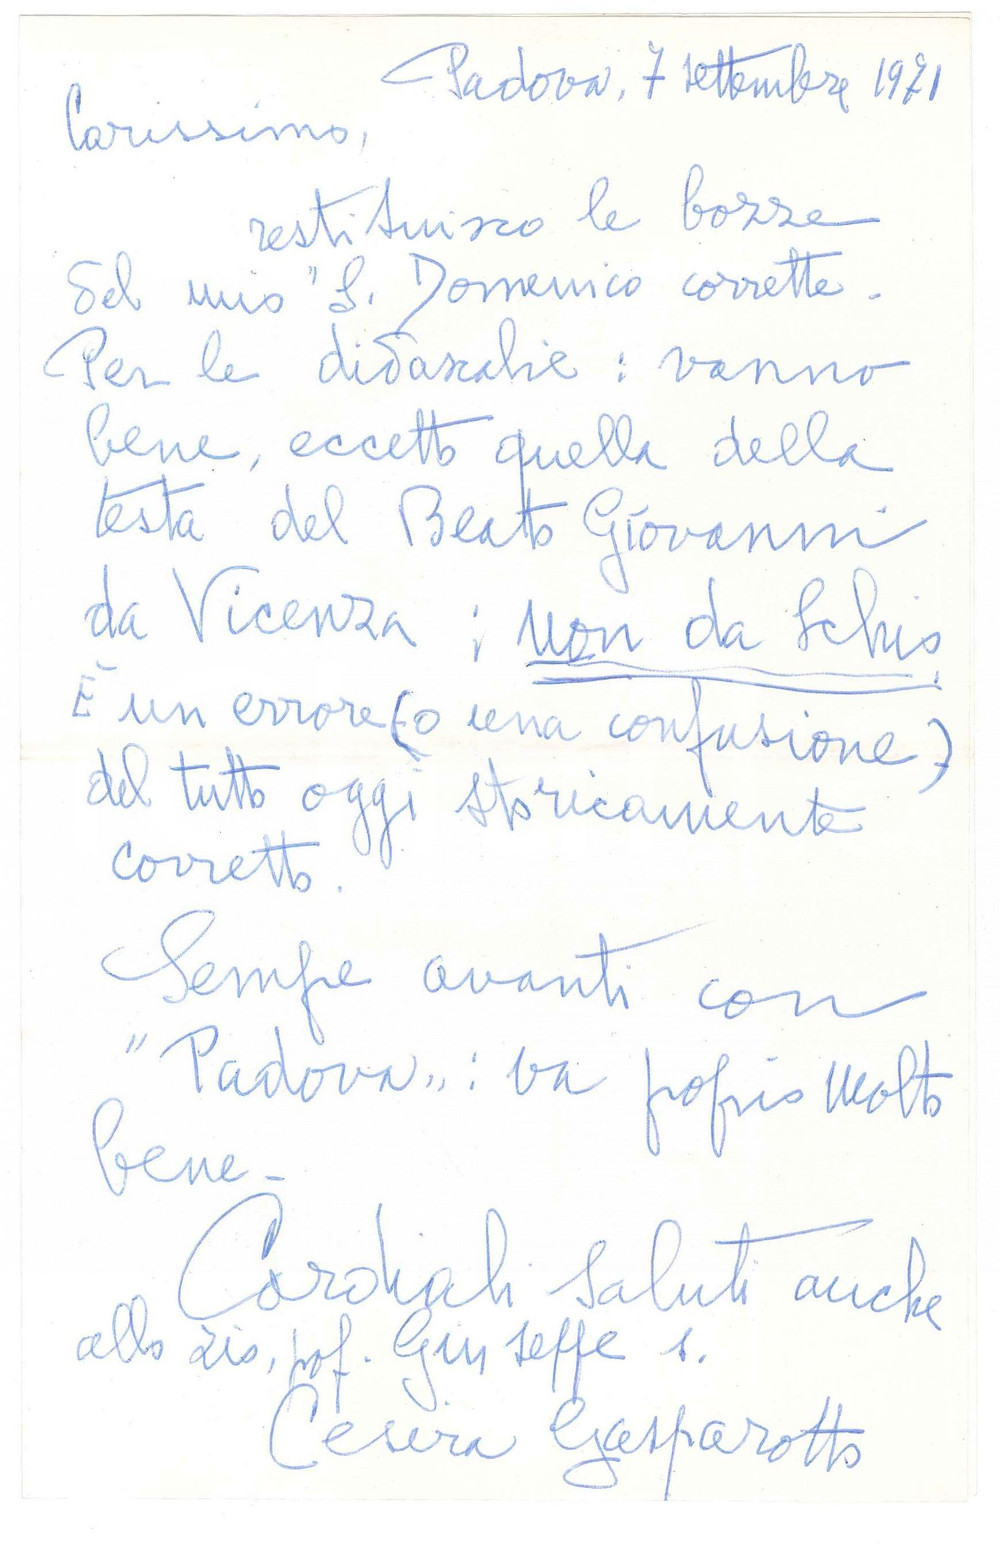 Padova, 7 settembre 1971
Carissimo,
restituisco le bozze
del mio "S. Domenico corrette.
Per le didascalie : vanno
bene, eccetto quella della
testa del Beato Giovanni
da Vicenza ; non da Schio.
È un errore (o una confusione)
del tutto oggi storicamente
corretto.
Sempre avanti con
"Padova„ : va proprio molto
bene -
Cordiali saluti anche
allo zio, prof. Giuseppe s.
Cesira Gasparotto